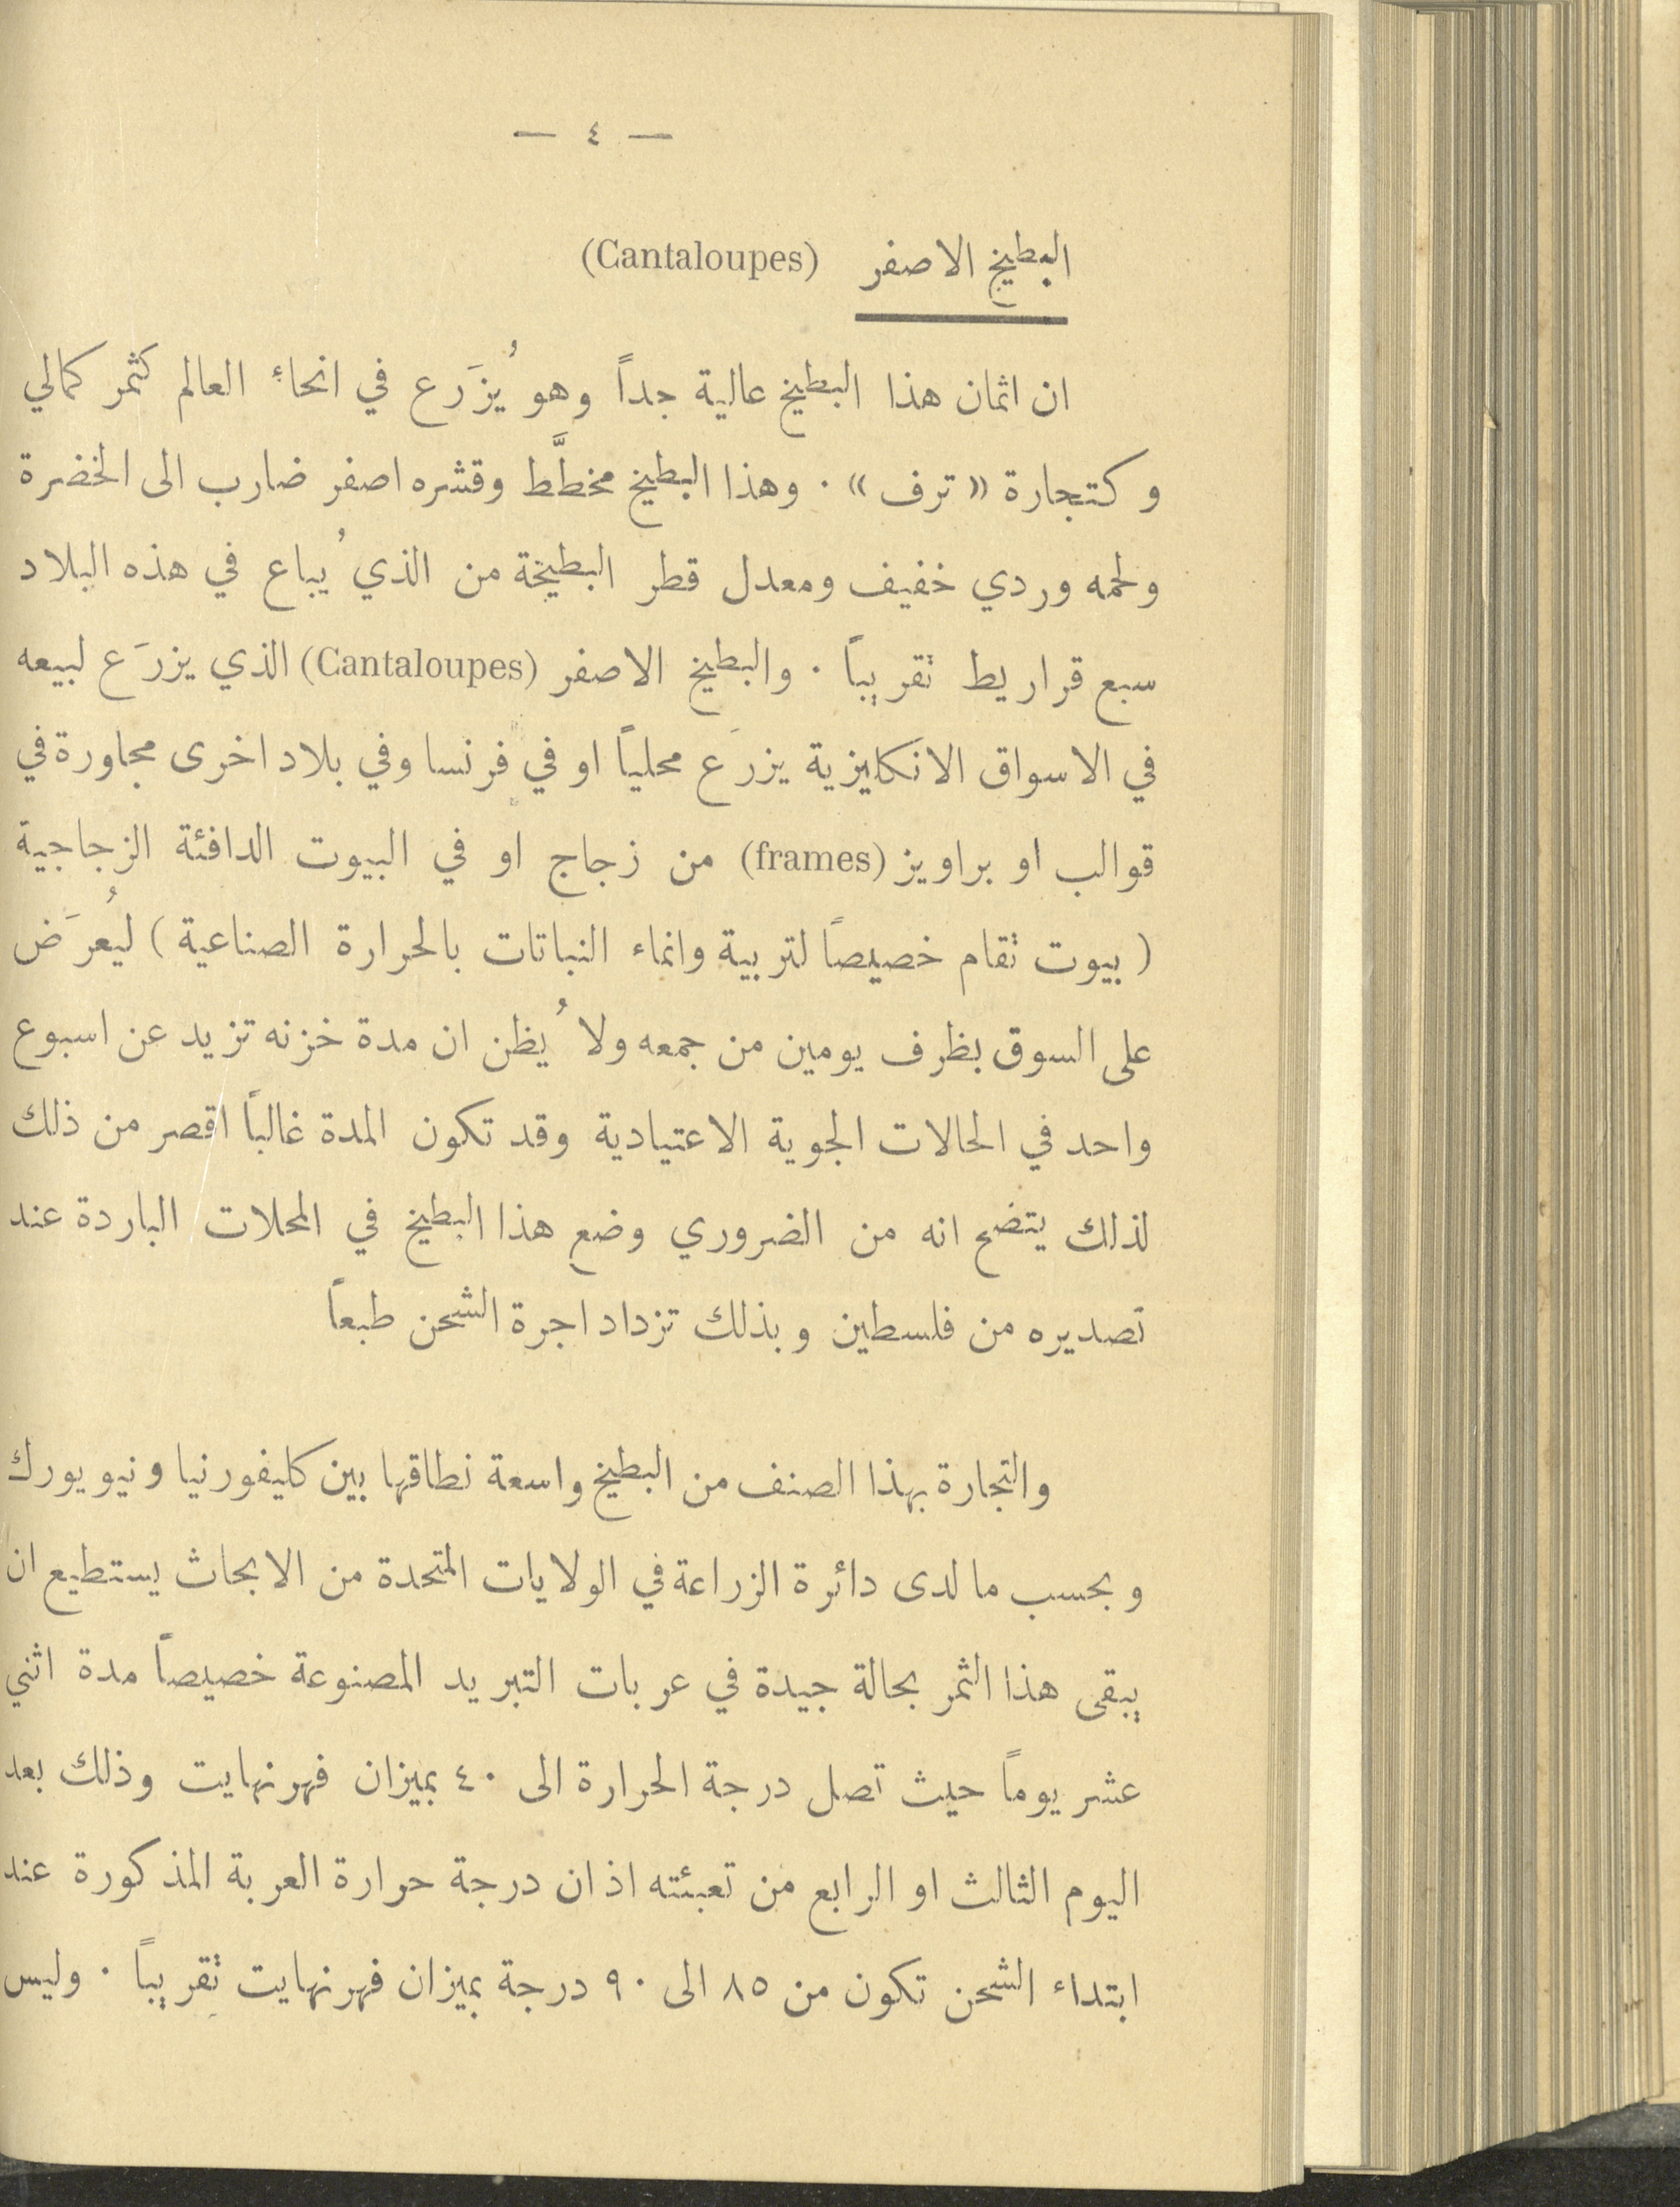 — ٤ —
البطيخ الاصفر (Cantaloupes)
ان اثمان هذا البطيخ عالية جداً وهو يُزرَع في انحاء العالم كثمر كمالي
وكتجارة «ترف» . وهذا البطيخ مخطَّط وقشره اصفر ضارب الى الخضرة
ولحمه وردي خفيف ومعدل قطر البطيخة من الذي يُباع في هذه البلاد
سبع قراريط تقريباً . والبطيخ الاصفر (Cantaloupes) الذي يزرَع لبيعه
في الاسواق الانكليزية يزرَع محلياً او في فرنسا وفي بلاد اخرى مجاورة في
قوالب او براويز (frames) من زجاج او في البيوت الدافئة الزجاجية
(بيوت تقام خصيصاً لتربية وانماء النباتات بالحرارة الصناعية) ليُعرَض
على السوق بظرف يومين من جمعه ولا يُظن ان مدة خزنه تزيد عن اسبوع
واحد في الحالات الجوية الاعتيادية وقد تكون المدة غالباً اقصر من ذلك
لذلك يتضح انه من الضروري وضع هذا البطيخ في المحلات الباردة عند
تصديره من فلسطين وبذلك تزداد اجرة الشحن طبعاً
والتجارة بهذا الصنف من البطيخ واسعة نطاقها بين كليفورنيا ونيويورك
وبحسب ما لدى دائرة الزراعة في الولايات المتحدة من الابحاث يستطيع ان
يبقى هذا الثمر بحالة جيدة في عربات التبريد المصنوعة خصيصاً مدة اثني
عشر يوماً حيث تصل درجة الحرارة الى ٤٠ بميزان فهرنهايت وذلك بعد
اليوم الثالث او الرابع من تعبئته اذ ان درجة حرارة العربة المذكورة عند
ابتداء الشحن تكون من ٨٥ الى ٩٠ درجة بميزان فهرنهايت تقريباً . وليس